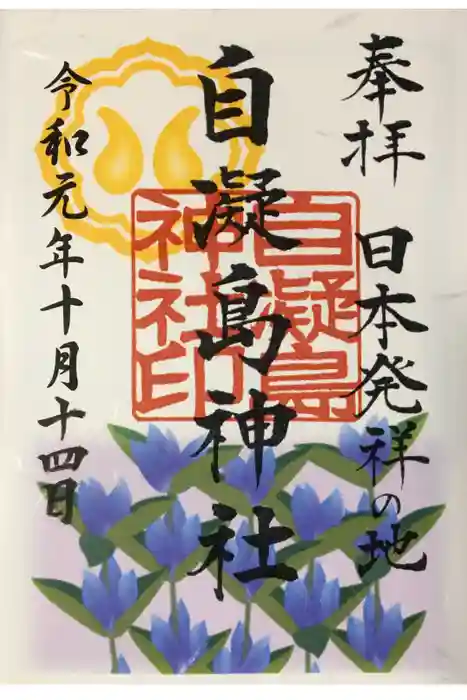 奉拝 日本発祥の地
自凝島神社
自凝島神社印
令和元年十月十四日